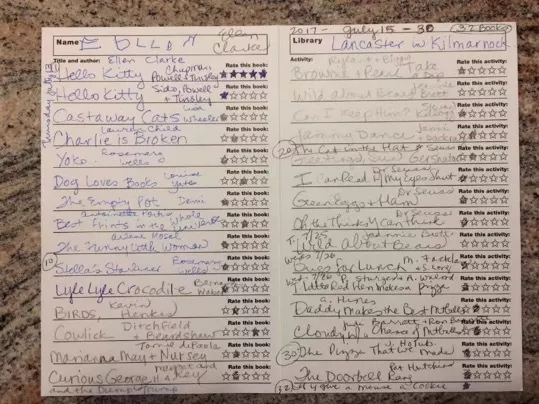 Name: Ellen Clarke
Title and author: Ellen Clarke
Rate this book:
Hello Kitty Chapman, Powell + Tinsley
Rate this book:
Hello Kitty Sido, Powell + Tinsley
Rate this book:
Castaway Cats Lisa Wheeler
Rate this book:
Charlie is Broken Lauren Child
Rate this book:
Yoko Rosemary Wells
Rate this book:
Dog Loves Books Louise Yates
Rate this book:
The Empty Pot Demi
Rate this book:
Antoinette Portis
Best Thing in the
Rate this book:
The Woman
Rate this book:
10
Stella's Starliner Rosemary Wells
Rate this book:
Lyle Lyle Crocodile Bernard Waber
Rate this book:
Birds, Kevin Henkes
Rate this book:
Cowlick Ditchfield + Beardshaw
Rate this book:
Marianna May + Nursey Tomie dePaola
Rate this book:
Curious George Margret and H. A. Rey
and the Dump Truck
2017 - July 15 - 30 (32 Books)
Library Lancaster w Kilmarnock
Activity:
Rate this activity:
Brown + Pearl Take
Rate this activity:
Wild About Bears
Rate this activity:
Can I Keep Him?
Rate this activity:
Jammy Dance
Rate this activity:
20 The Cat in the Hat Seuss
Rate this activity:
Rate this activity:
I Can Read w/ My Eyes Shut Dr Seuss
Rate this activity:
Green Eggs + Ham Dr Seuss
Rate this activity:
Oh the Thinks U Can Think Dr Seuss
Rate this activity:
T. 7/25 Wild About Bears Jeannie Brett
Rate this activity:
Wed 7/26 Bears for Lunch M.
Rate this activity:
P. Sturges + A. Walrod
Little Red Hen Makes a Pizza
Rate this activity:
A. Hines
Daddy Makes the Best
Rate this activity:
Judi Barrett + Ron Barrett
Cloudy w/ a Chance of Meatballs
Rate this activity:
30 The Pizza That We Made J. Holub
Rate this activity:
The Doorbell Rang Pat Hutchins
Rate this activity:
32 If U give a mouse a cookie